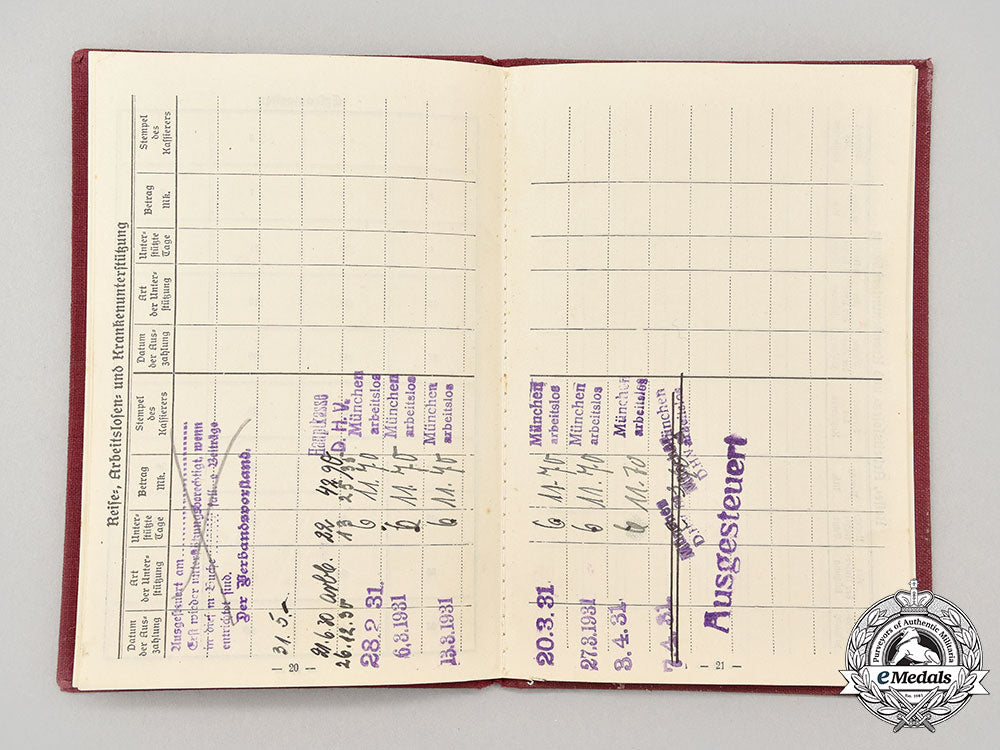 Reise-, Arbeitslosen- und Krankenunterstützung
Datum der Auszahlung | Art der Unterstützung | Unterstützte Tage | Betrag Mk. | Stempel des Kassierers | Datum der Auszahlung | Art der Unterstützung | Unterstützte Tage | Betrag Mk. | Stempel des Kassierers
Ausgesteuert am
Erst wieder unterstützungsberechtigt, wenn
in diesem Buche Beiträge
entrichtet sind.
Der Verbandsvorstand.
31. 5. –
21.6.30 arbl. 22 42.90 Hauptkasse
26.12.30 13 D. H. V.
28.2.31. 6 11.70 München arbeitslos
6.3.1931 6 11.70 München arbeitslos
13.3.1931 6 11.70 München arbeitslos
– 20 –
20.3.31. 6 11.70 München arbeitslos
27.3.1931 6 11.70 München arbeitslos
3.4.31. 6 11.70 München arbeitslos
7.4.31. München D.H.V. München arbeitslos
Ausgesteuert
– 21 –
Purveyors of Authentic Militaria
eMedals